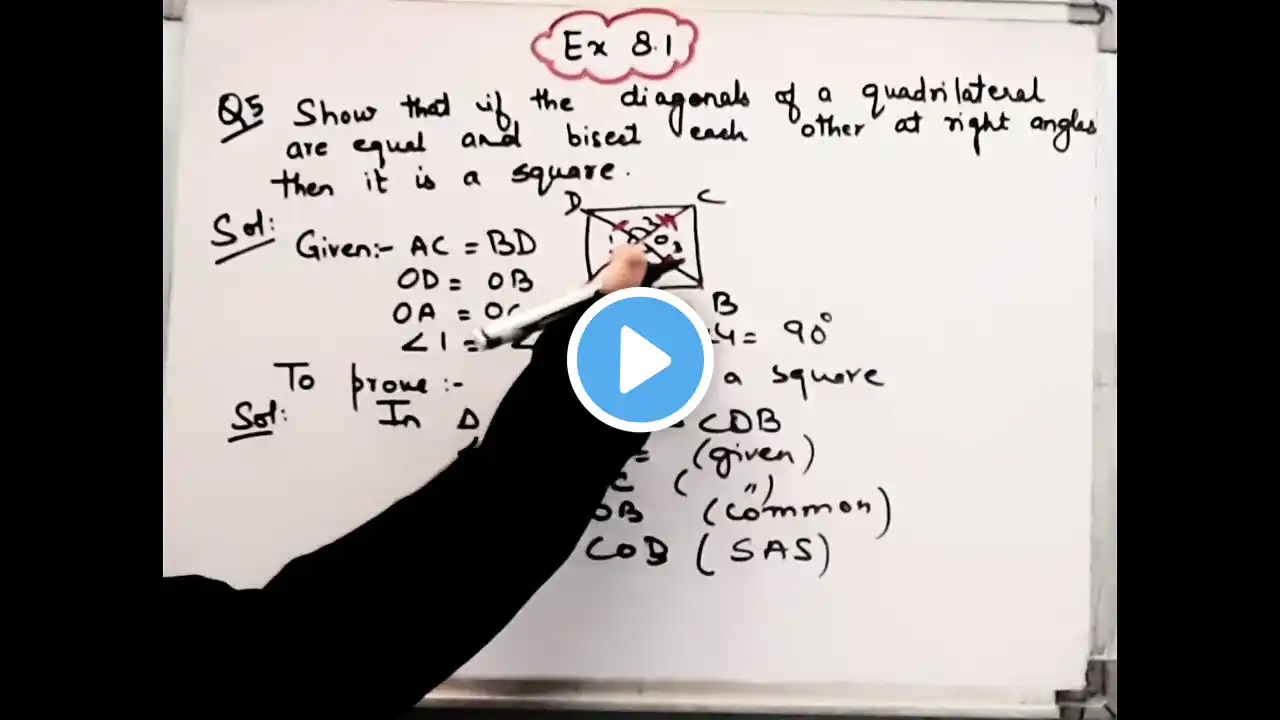 Ex 8.1
Q5 Show that if the diagonals of a quadrilateral
are equal and bisect each other at right angles
then it is a square.
D C
Sol:
Given:- AC = BD
OD = OB
OA =
∠1 =
B
= 90°
To prove :-
a square
Sol: In Δ
CDB
= (given)
( " )
OB (common)
COB (SAS)